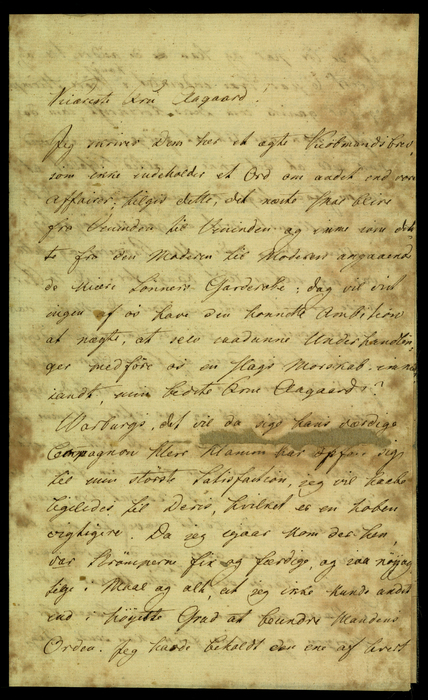 Kiæreste Frue Aagaard!
Jeg skriver Dem her et ægte Kiøbmandsbrev,
som ikke indeholder et Ord om andet end vore
affairer; følger dette, det næste skal blive
fra Veninden til Veninden og
fra den Moderen til Moderen angaaende
de kiære Sønners Garderobe; dog vil vist
ingen af os have den honnette Ambition
at nægte, at selv saadanne Underhandlin-
ger medføre os en Slags Morskab. en
sandt, min bedste Frue Aagaard?
Warburgs, det vil da sige hans værdige
Compagnon Herr har opført sig
til min største Satisfaction, jeg vil haabe
ligeledes til Deres, hvilket er en
vigtigere. Da jeg igaar kom der hen,
var Strømperne fix og færdige, og saa nøjag
tige i Maal og alt, at jeg ikke kunde andet
end i høieste Grad at beundre Mandens
Orden. Jeg havde beholdt den ene af